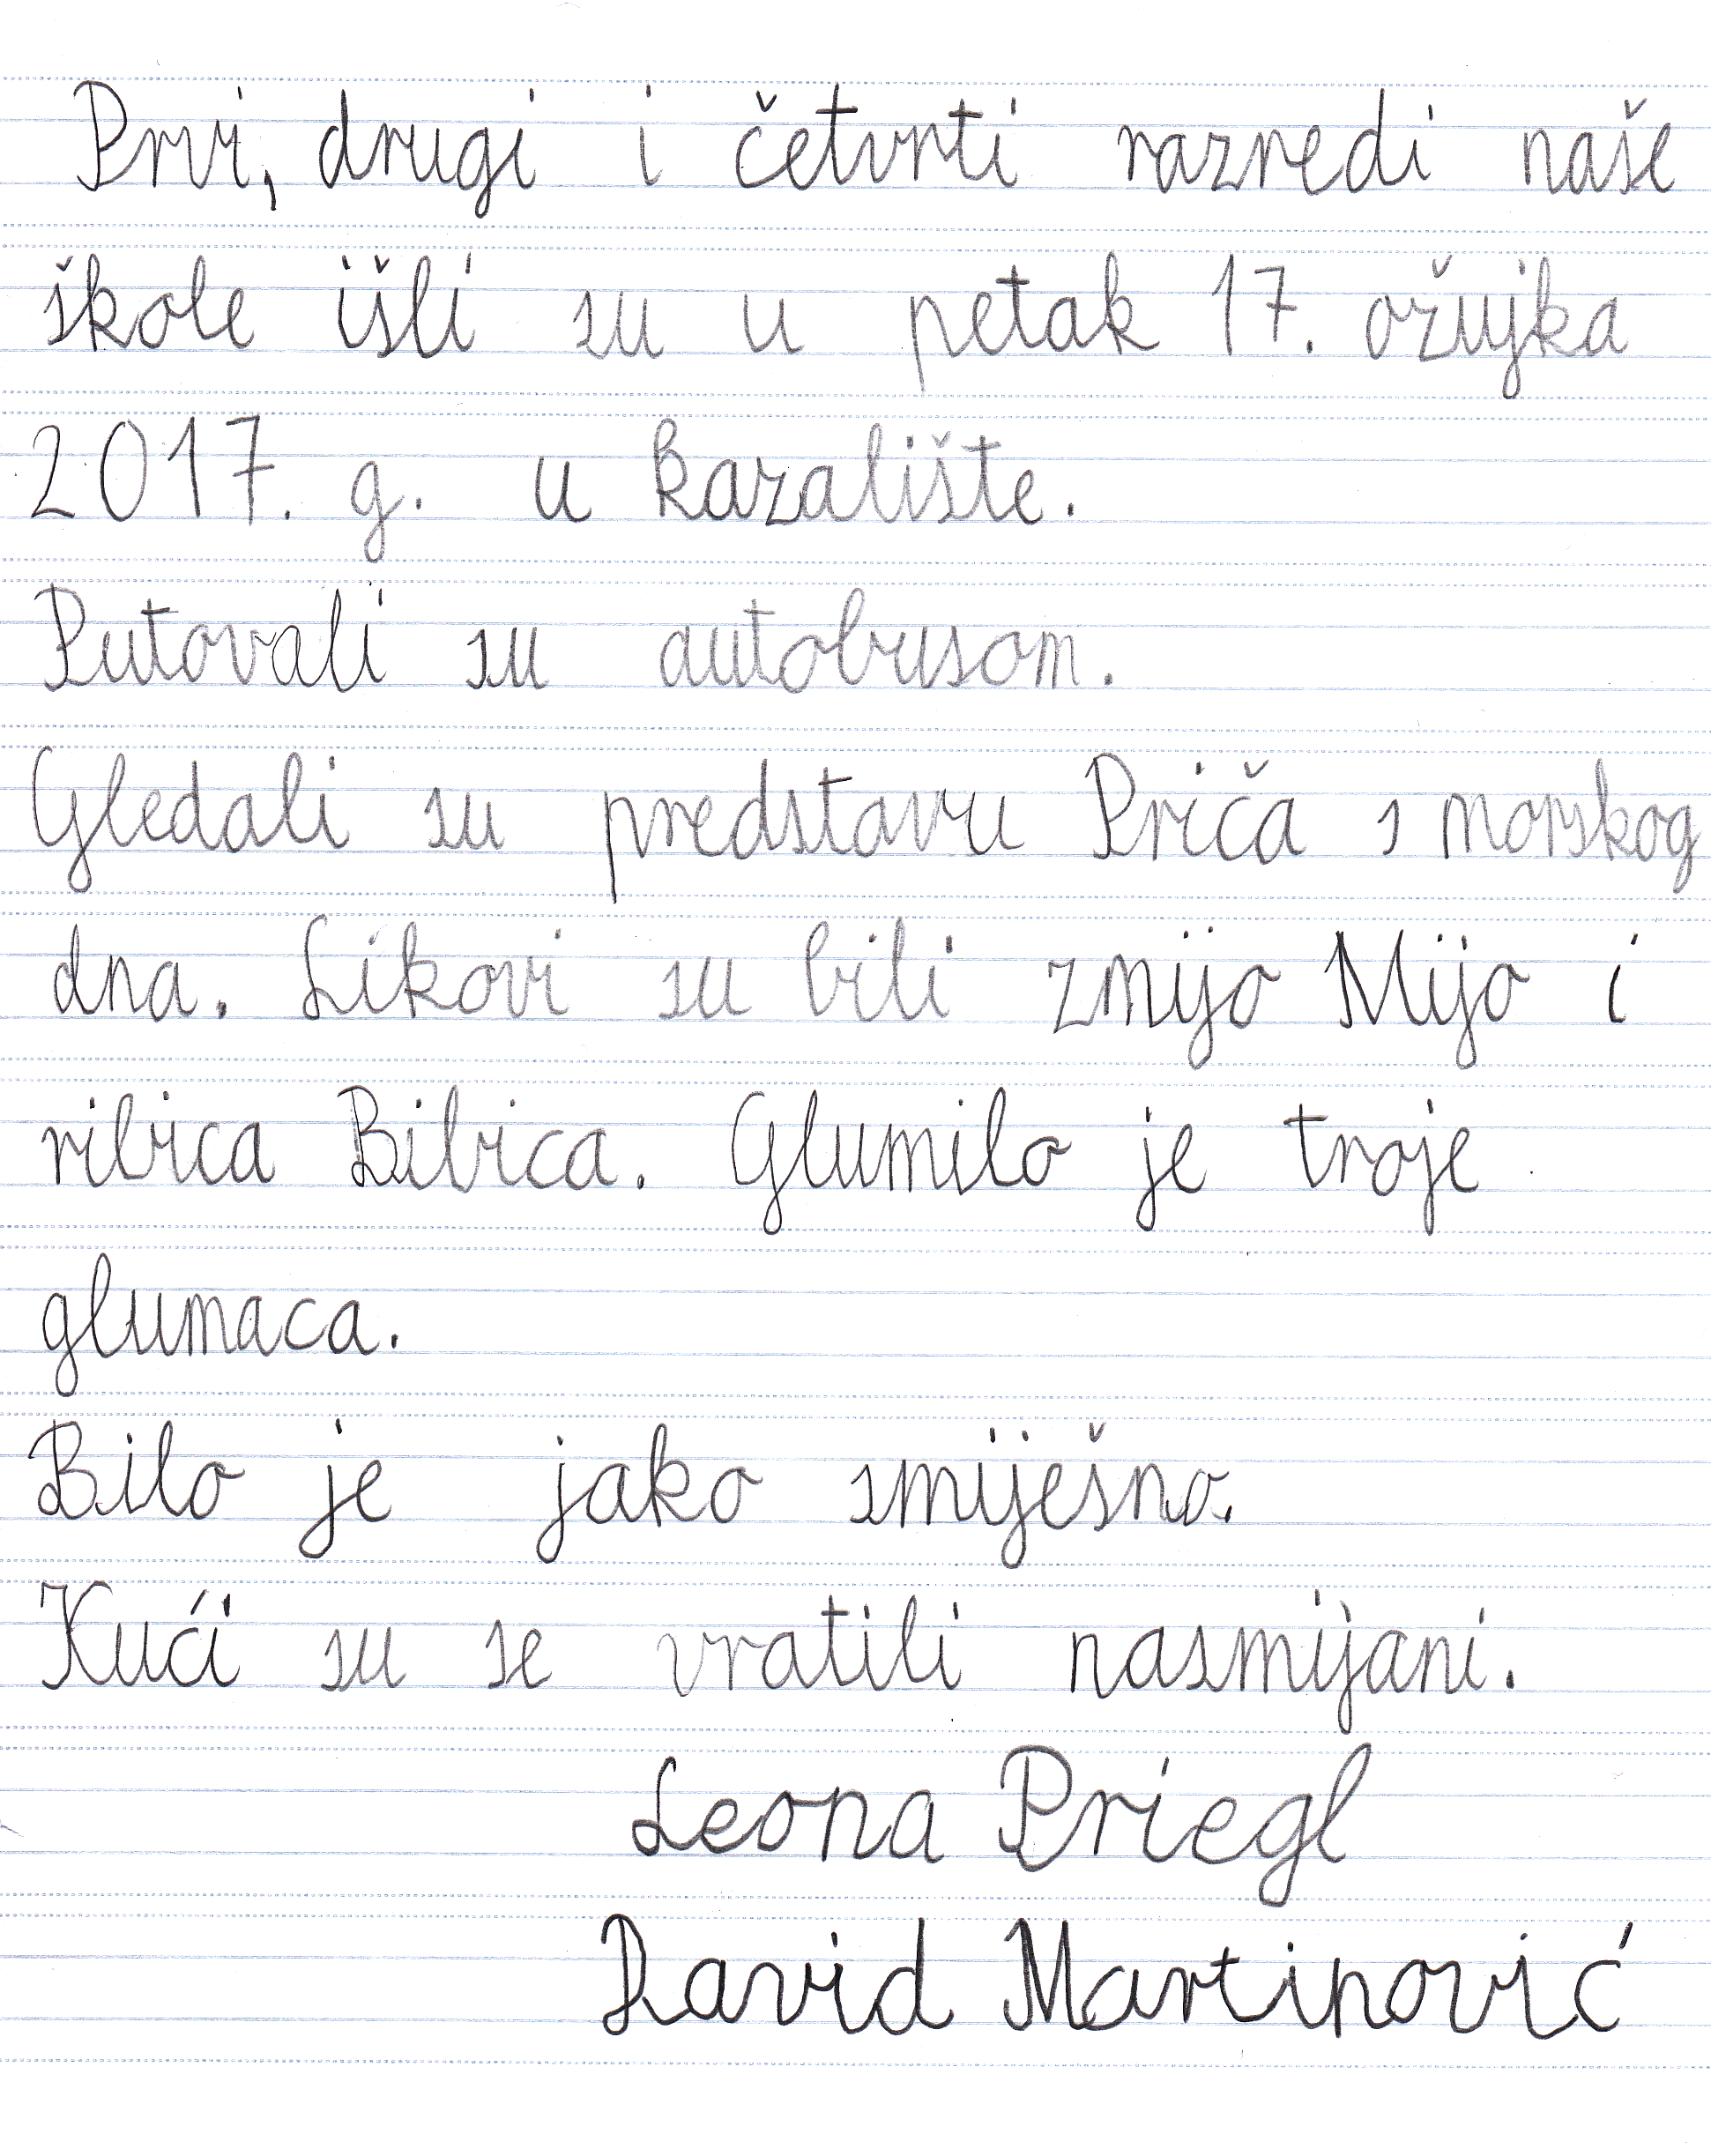 Prvi, drugi i četvrti razredi naše
škole išli su u petak 17. ožujka
2017. g. u kazalište.
Putovali su autobusom.
Gledali su predstavu Priča s morskog
dna. Likovi su bili zmijo Mijo i
ribica Bibica. Glumilo je troje
glumaca.
Bilo je jako smiješno.
Kući su se vratili nasmijani.
Leona Priegl
David Martinović